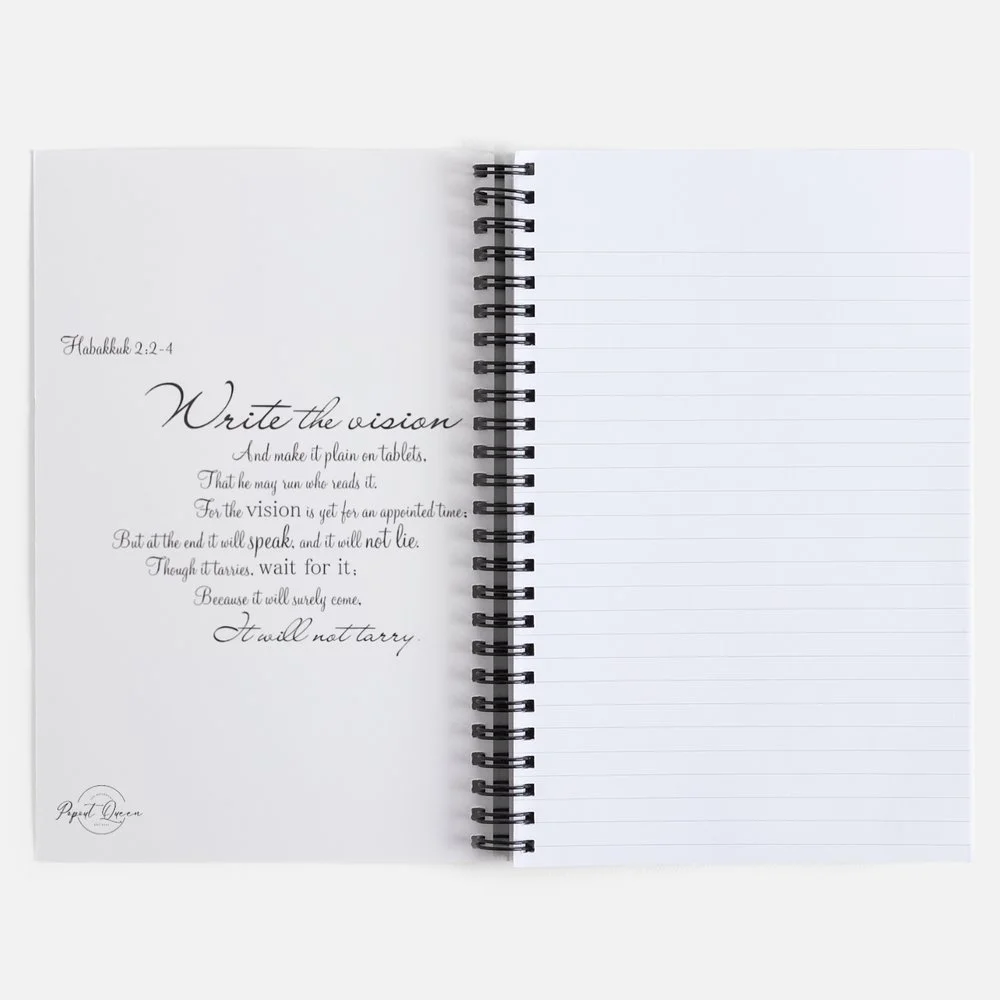 Habakkuk 2:2-4
Write the vision
And make it plain on tablets,
That he may run who reads it.
For the vision is yet for an appointed time;
But at the end it will speak, and it will not lie.
Though it tarries, wait for it;
Because it will surely come,
It will not tarry.
Popout Queen